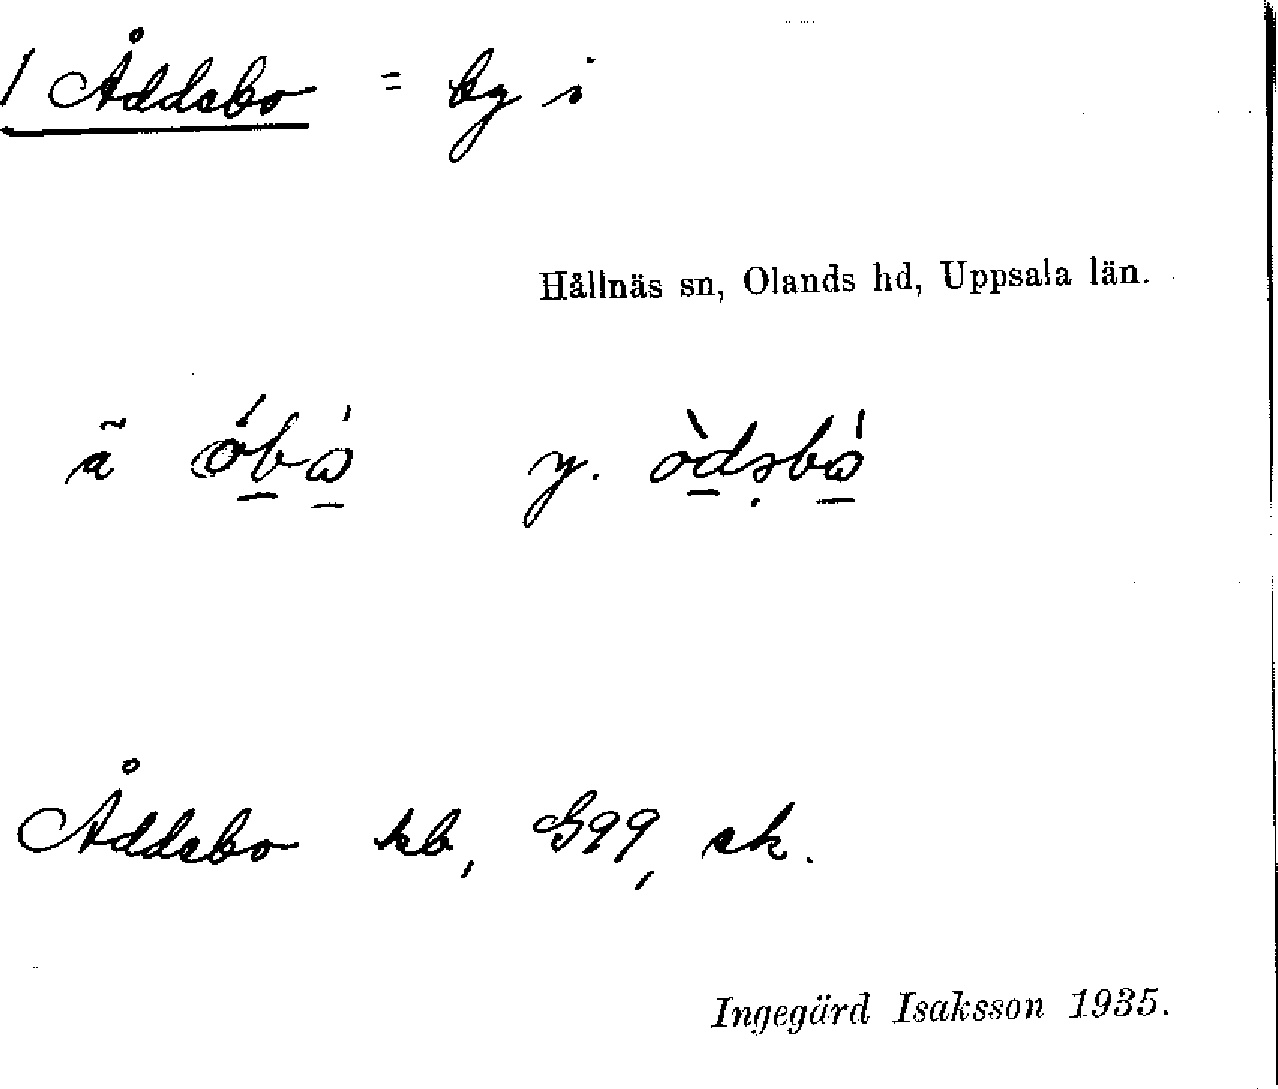 1 Åddebo = by i
Hållnäs sn, Olands hd, Uppsala län.
ã y.
Åddebo kb, G99, ek.
Ingegärd Isaksson 1935.